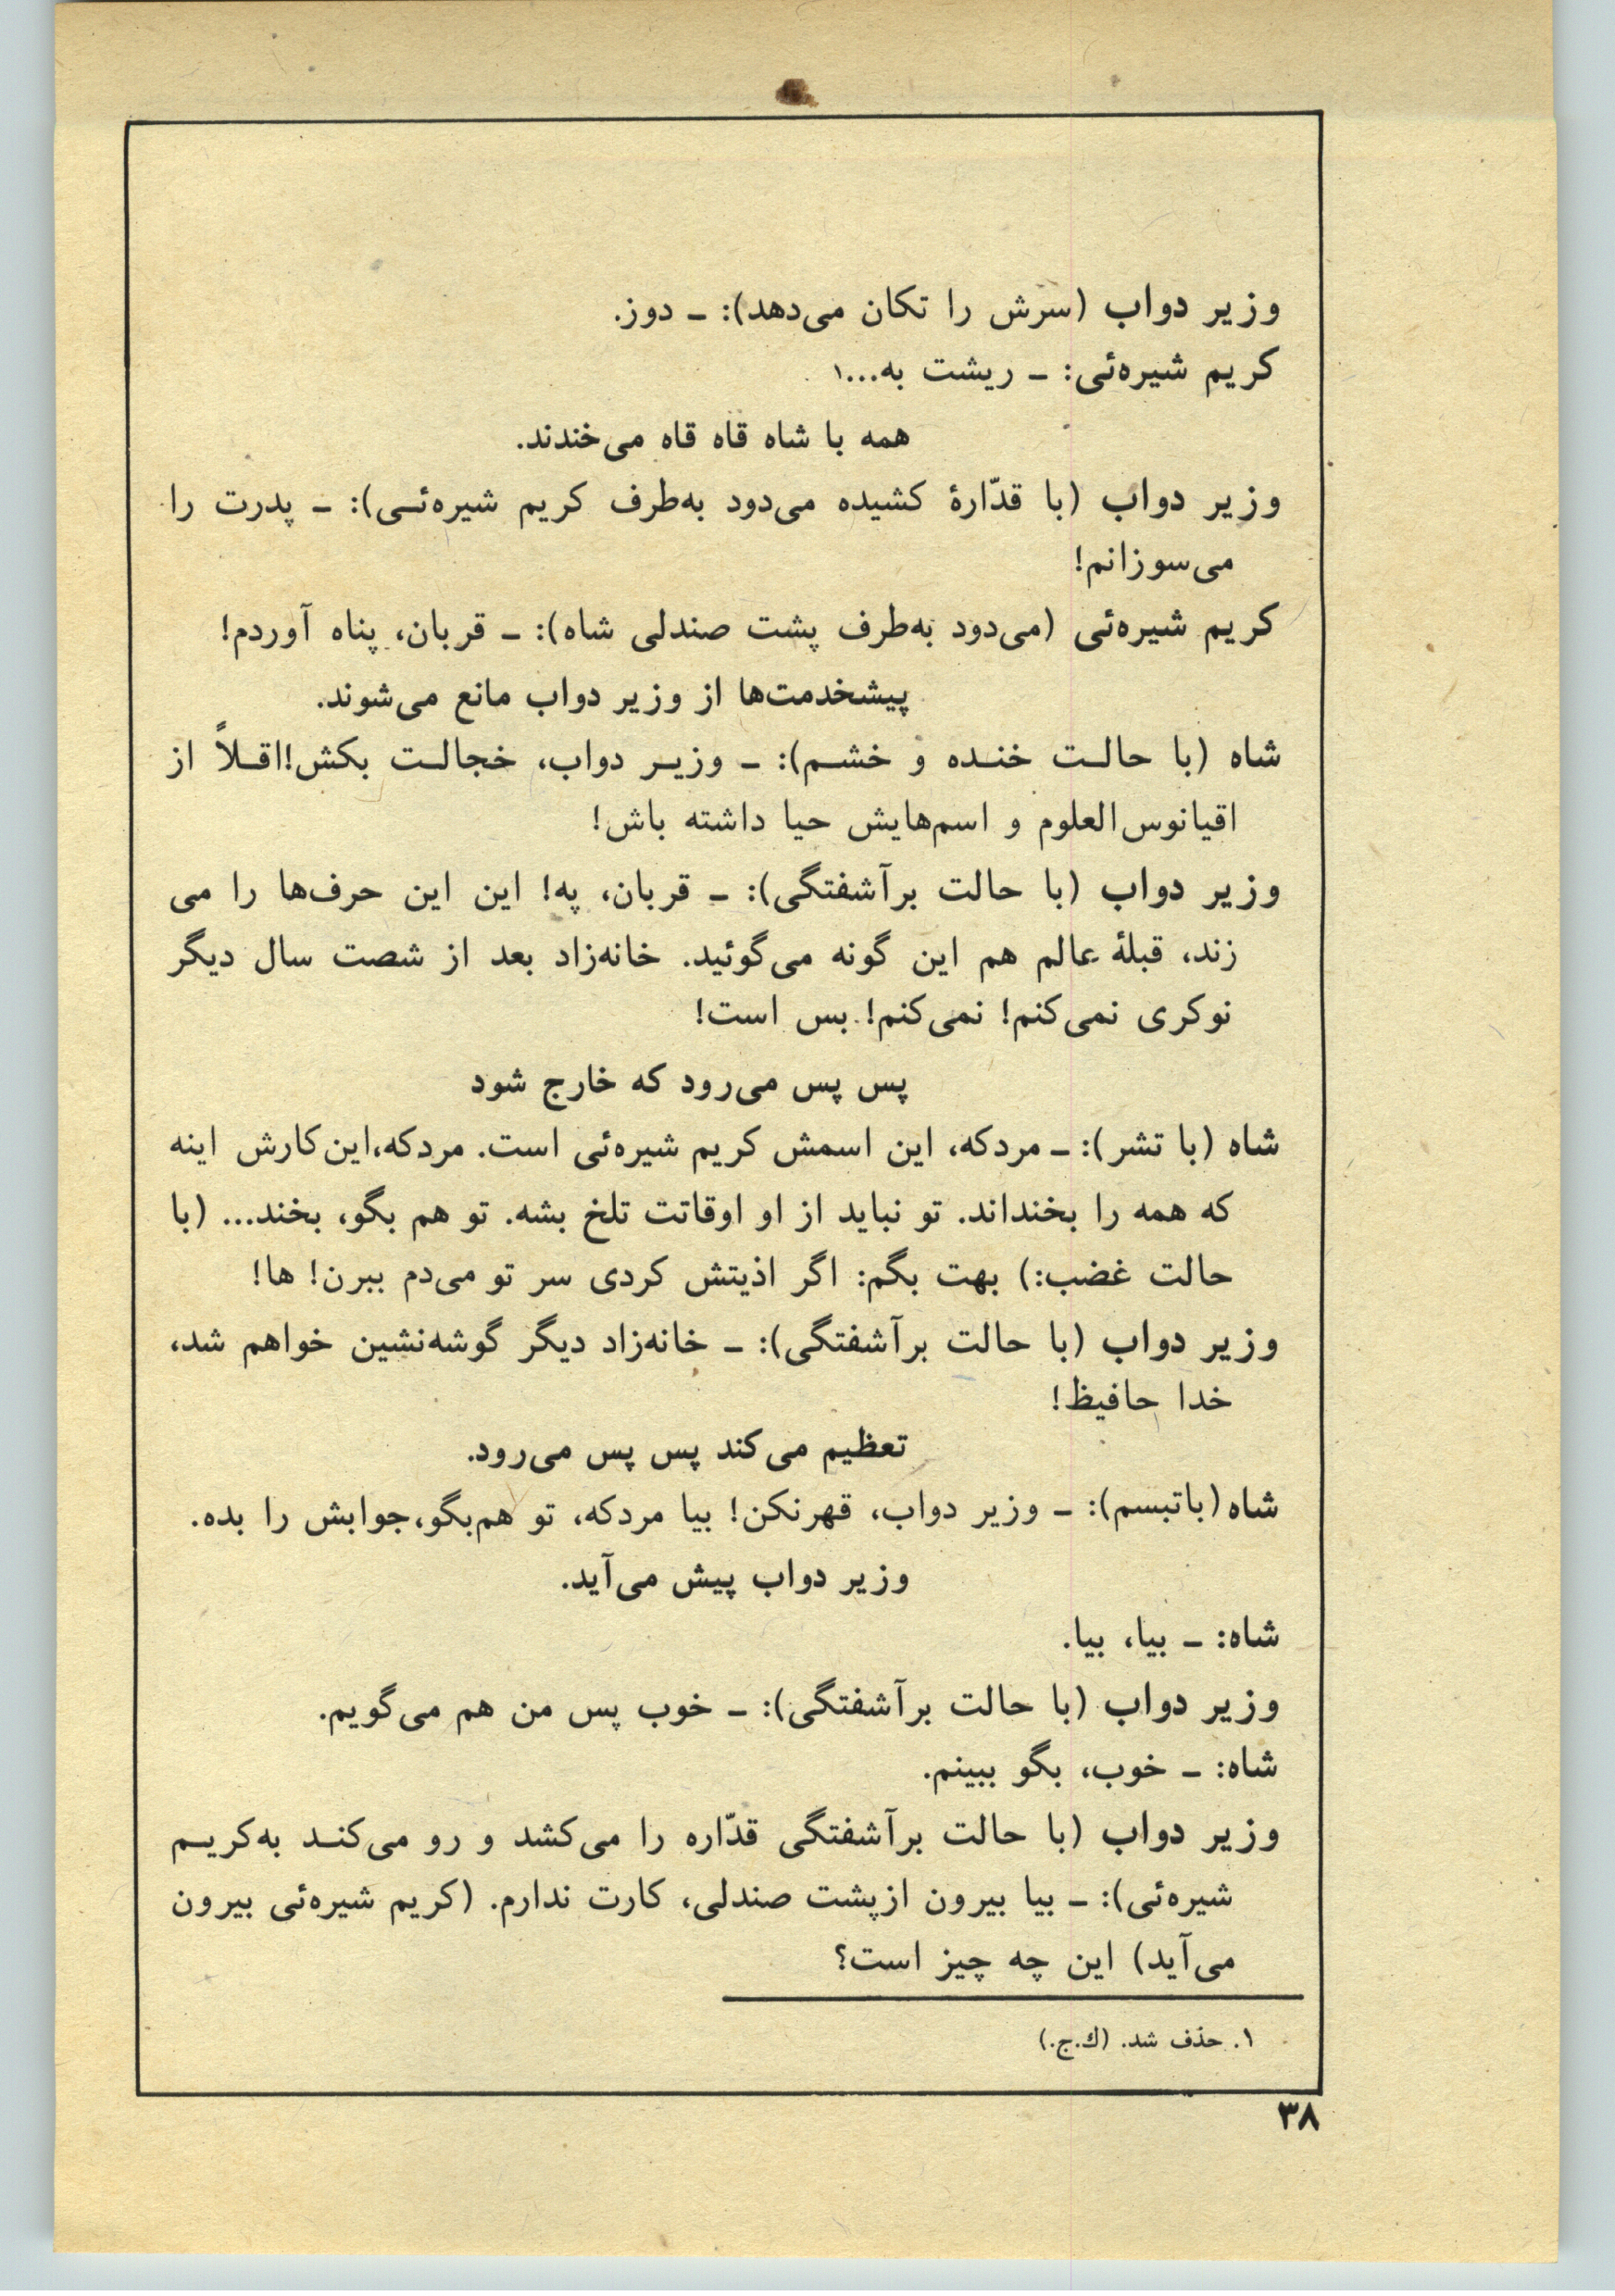 وزیر دواب (سرش را تکان می‌دهد): ـ دوز.
کریم شیره‌ئی: ـ ریشت به...۱
همه با شاه قاه قاه می‌خندند.
وزیر دواب (با قدّارهٔ کشیده می‌دود به‌طرف کریم شیره‌ئـی): ـ پدرت را
می‌سوزانم!
کریم شیره‌ئی (می‌دود به‌طرف پشت صندلی شاه): ـ قربان، پناه آوردم!
پیشخدمت‌ها از وزیر دواب مانع می‌شوند.
شاه (با حالـت خنـده و خشـم): ـ وزیـر دواب، خجالـت بکش!اقـلاً از
اقیانوس‌العلوم و اسم‌هایش حیا داشته باش!
وزیر دواب (با حالت برآشفتگی): ـ قربان، په! این این حرف‌ها را می
زند، قبلهٔ عالم هم این گونه می‌گوئید. خانه‌زاد بعد از شصت سال دیگر
نوکری نمی‌کنم! نمی‌کنم! بس است!
پس پس می‌رود که خارج شود
شاه (با تشر): ـ مردکه، این اسمش کریم شیره‌ئی است. مردکه،این‌کارش اینه
که همه را بخنداند. تو نباید از او اوقاتت تلخ بشه. تو هم بگو، بخند... (با
حالت غضب:) بهت بگم: اگر اذیتش کردی سر تو می‌دم ببرن! ها!
وزیر دواب (با حالت برآشفتگی): ـ خانه‌زاد دیگر گوشه‌نشین خواهم شد،
خدا حافیظ!
تعظیم می‌کند پس پس می‌رود.
شاه (باتبسم): ـ وزیر دواب، قهرنکن! بیا مردکه، تو هم‌بگو،جوابش را بده.
وزیر دواب پیش می‌آید.
شاه: ـ بیا، بیا.
وزیر دواب (با حالت برآشفتگی): ـ خوب پس من هم می‌گویم.
شاه: ـ خوب، بگو ببینم.
وزیر دواب (با حالت برآشفتگی قدّاره را می‌کشد و رو می‌کنـد به‌کریـم
شیره‌ئی): ـ بیا بیرون ازپشت صندلی، کارت ندارم. (کریم شیره‌ئی بیرون
می‌آید) این چه چیز است؟
۱. حذف شد. (ك.ج.)
۳۸